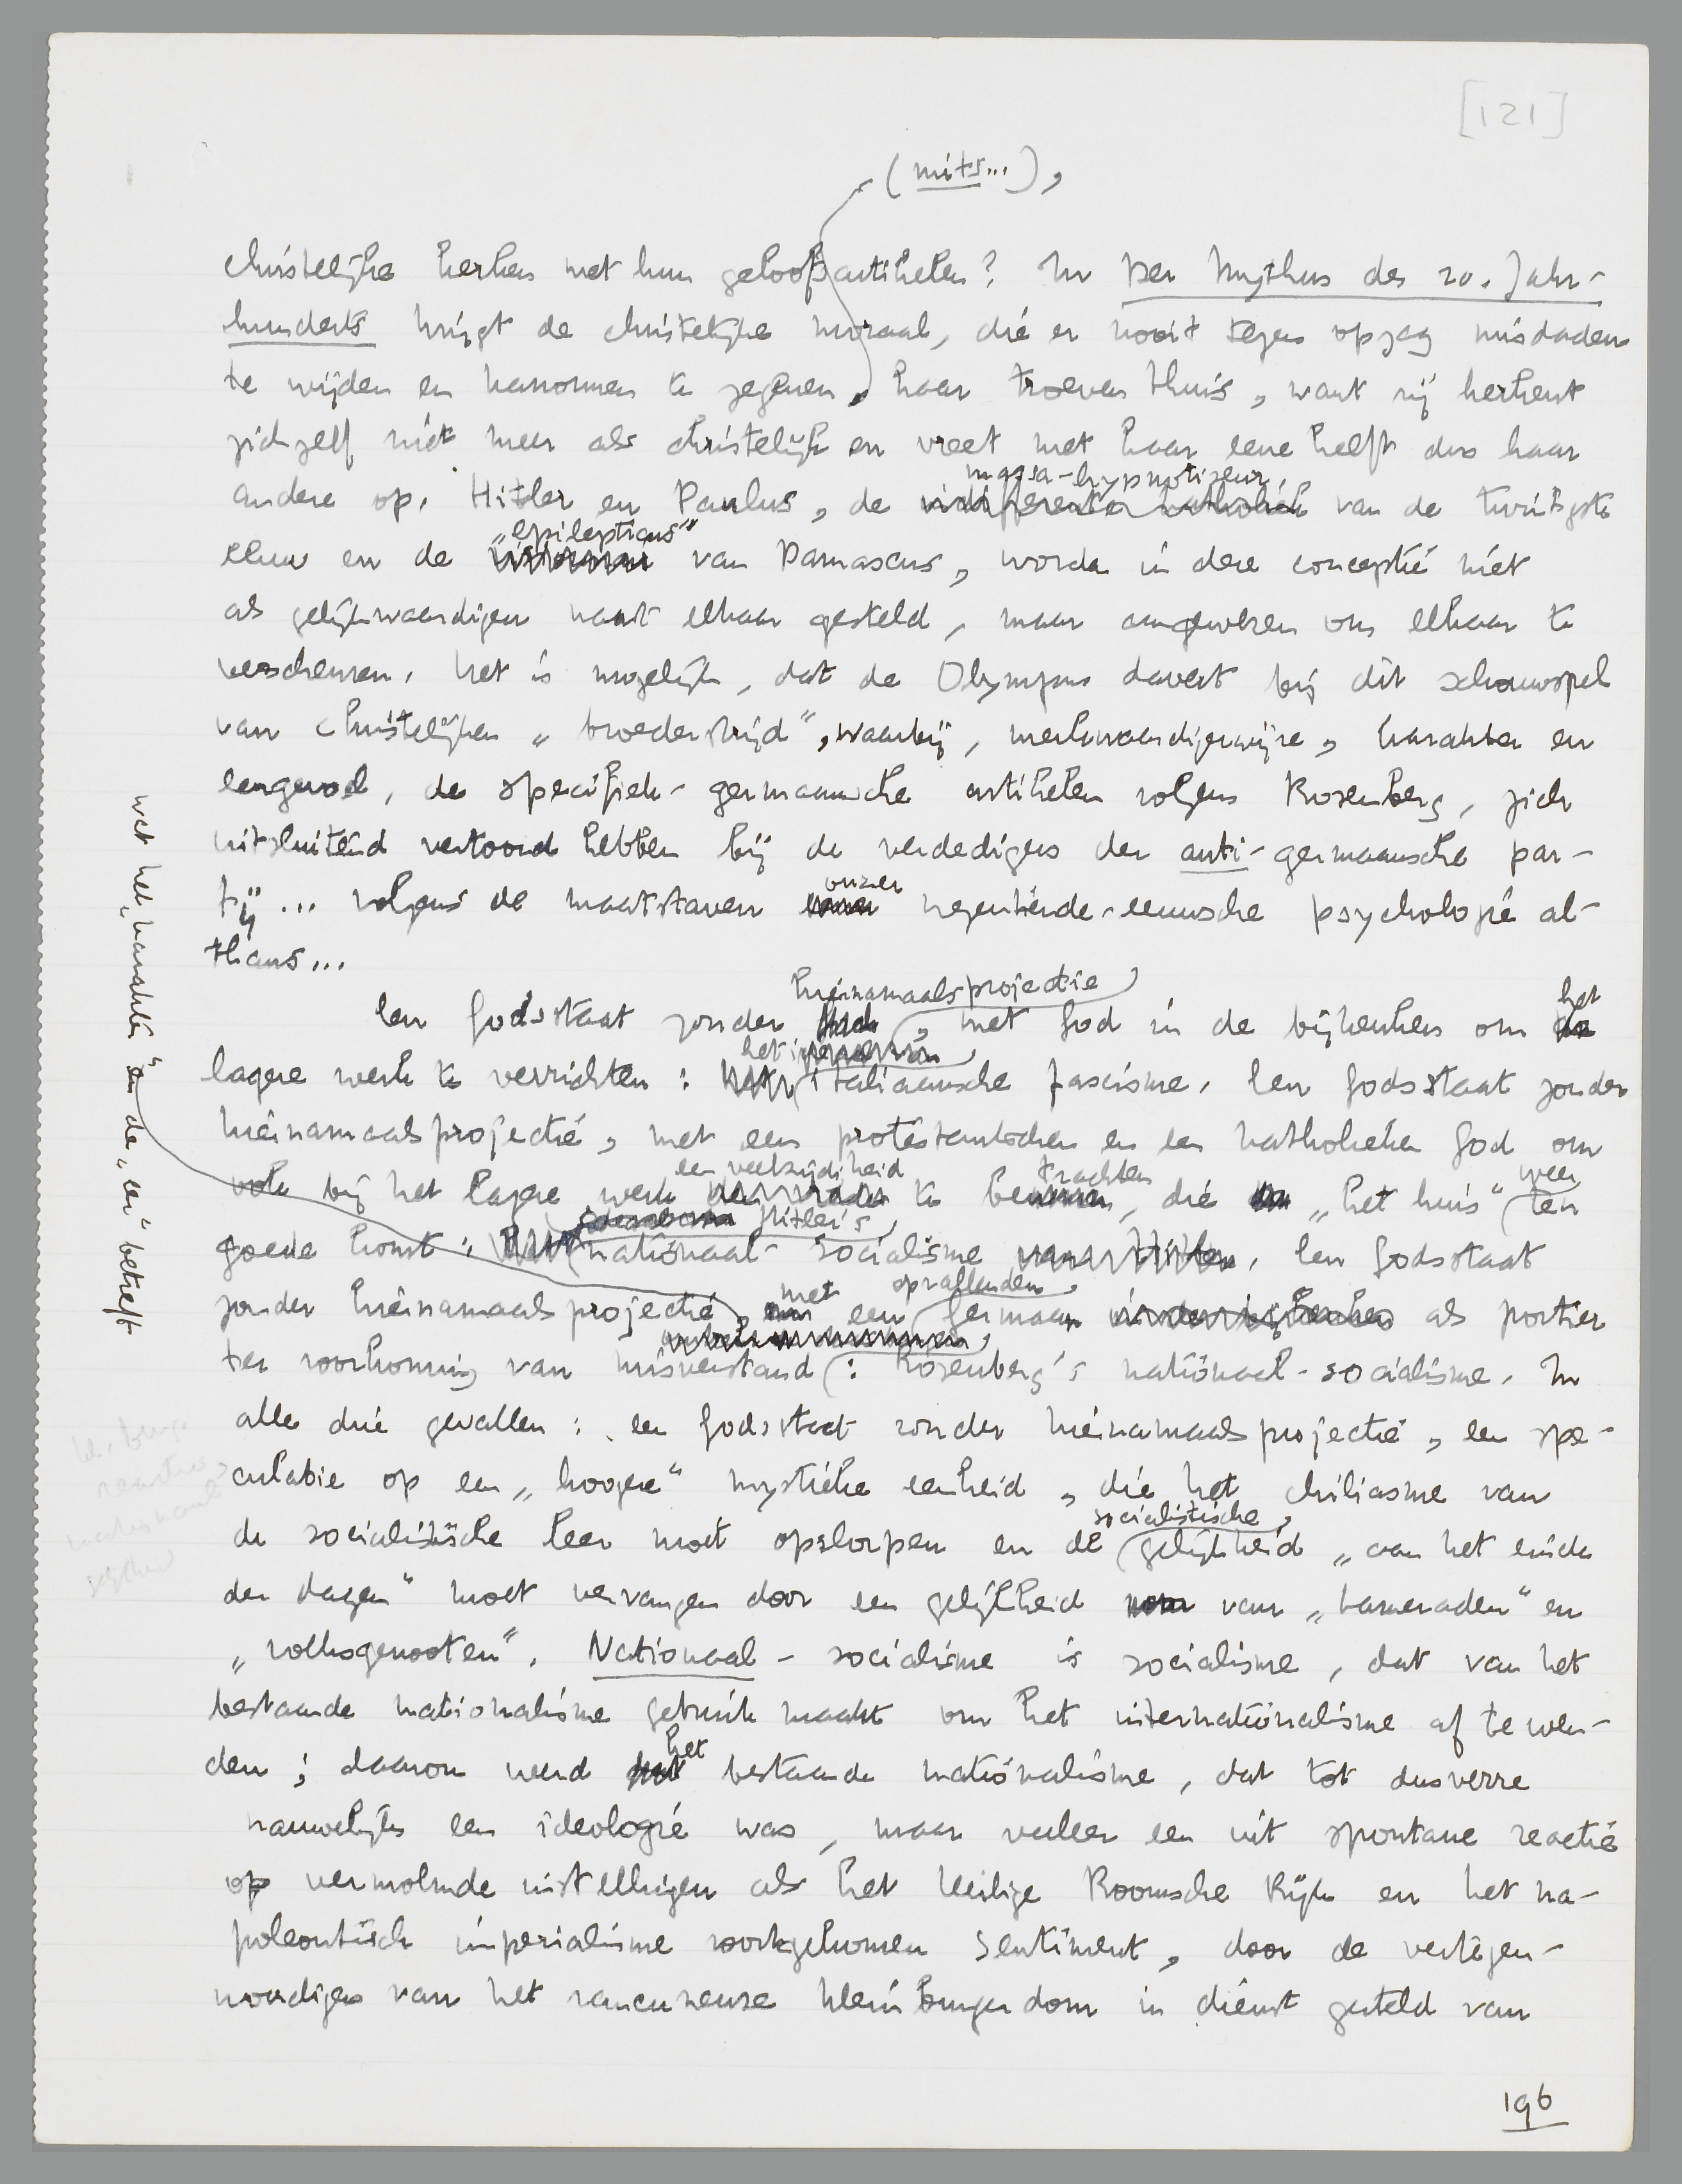 [121]
(mits...),
christelijke kerken met hun geloofsartikelen? In Der Mythus des 20. Jahr-
hunderts krijgt de christelijke moraal, die er nooit tegen opzag misdaden
te wijden en kanonnen te zegenen, haar troeven thuis, want zij herkent
zichzelf niet meer als christelijk en vreet met haar eene helft dus haar
massa-hypnotiseur
andere op. Hitler en Paulus, de indifferente katholiek van de twintigste
„epilepticus"
eeuw en de visionnair van Damascus, worden in deze conceptie niet
als gelijkwaardigen naast elkaar gesteld, maar aangewezen om elkaar te
verscheuren. Het is mogelijk, dat de Olympus davert bij dit schouwspel
van christelijken „broederstrijd", waarbij, merkwaardigerwijze, karakter en
eergevoel, de specifiek-germaansche artikelen volgens Rosenberg, zich
uitsluitend vertoond hebben bij de verdedigers der anti-germaansche par-
onzer
tij... volgens de maatstaven negentiende-eeuwsche psychologie al-
thans...
hiernamaalsprojectie
het
Een Godsstaat zonder, met God in de bijkeuken om
het
lagere werk te verrichten: italiaansche fascisme. Een Godsstaat zonder
hiernamaalsprojectie, met een protestantschen en een katholieken God om
een veelzijdigheid trachten weer
ook bij het lagere werk te, die „het huis" ten
Hitler's
goede komt: nationaal-socialisme van Hitler. Een Godsstaat
met opvallenden
zonder hiernamaalsprojectie, een Germaan in de bijkeuken als portier
ter voorkoming van misverstand: Rosenberg's nationaal-socialisme. In
alle drie gevallen: een Godsstaat zonder hiernamaalsprojectie, een spe-
culatie op een „hoogere" mystieke eenheid, die het chiliasme van
socialistische
de socialistische leer moet opslorpen en de gelijkheid „aan het einde
der dagen" moet vervangen door een gelijkheid van „kameraden" en
„volksgenooten". Nationaal-socialisme is socialisme, dat van het
bestaande nationalisme gebruik maakt om het internationalisme af te wen-
het
den; daarom werd bestaande nationalisme, dat tot dusverre
nauwelijks een ideologie was, maar veeleer een uit spontane reactie
op vermolmde instellingen als het Heilige Roomsche Rijk en het na-
poleontisch imperialisme voortgekomen sentiment, door de vertegen-
woordigers van het rancuneuze kleinburgerdom in dienst gesteld van
wat het „karakter" en de „eer" betreft
196